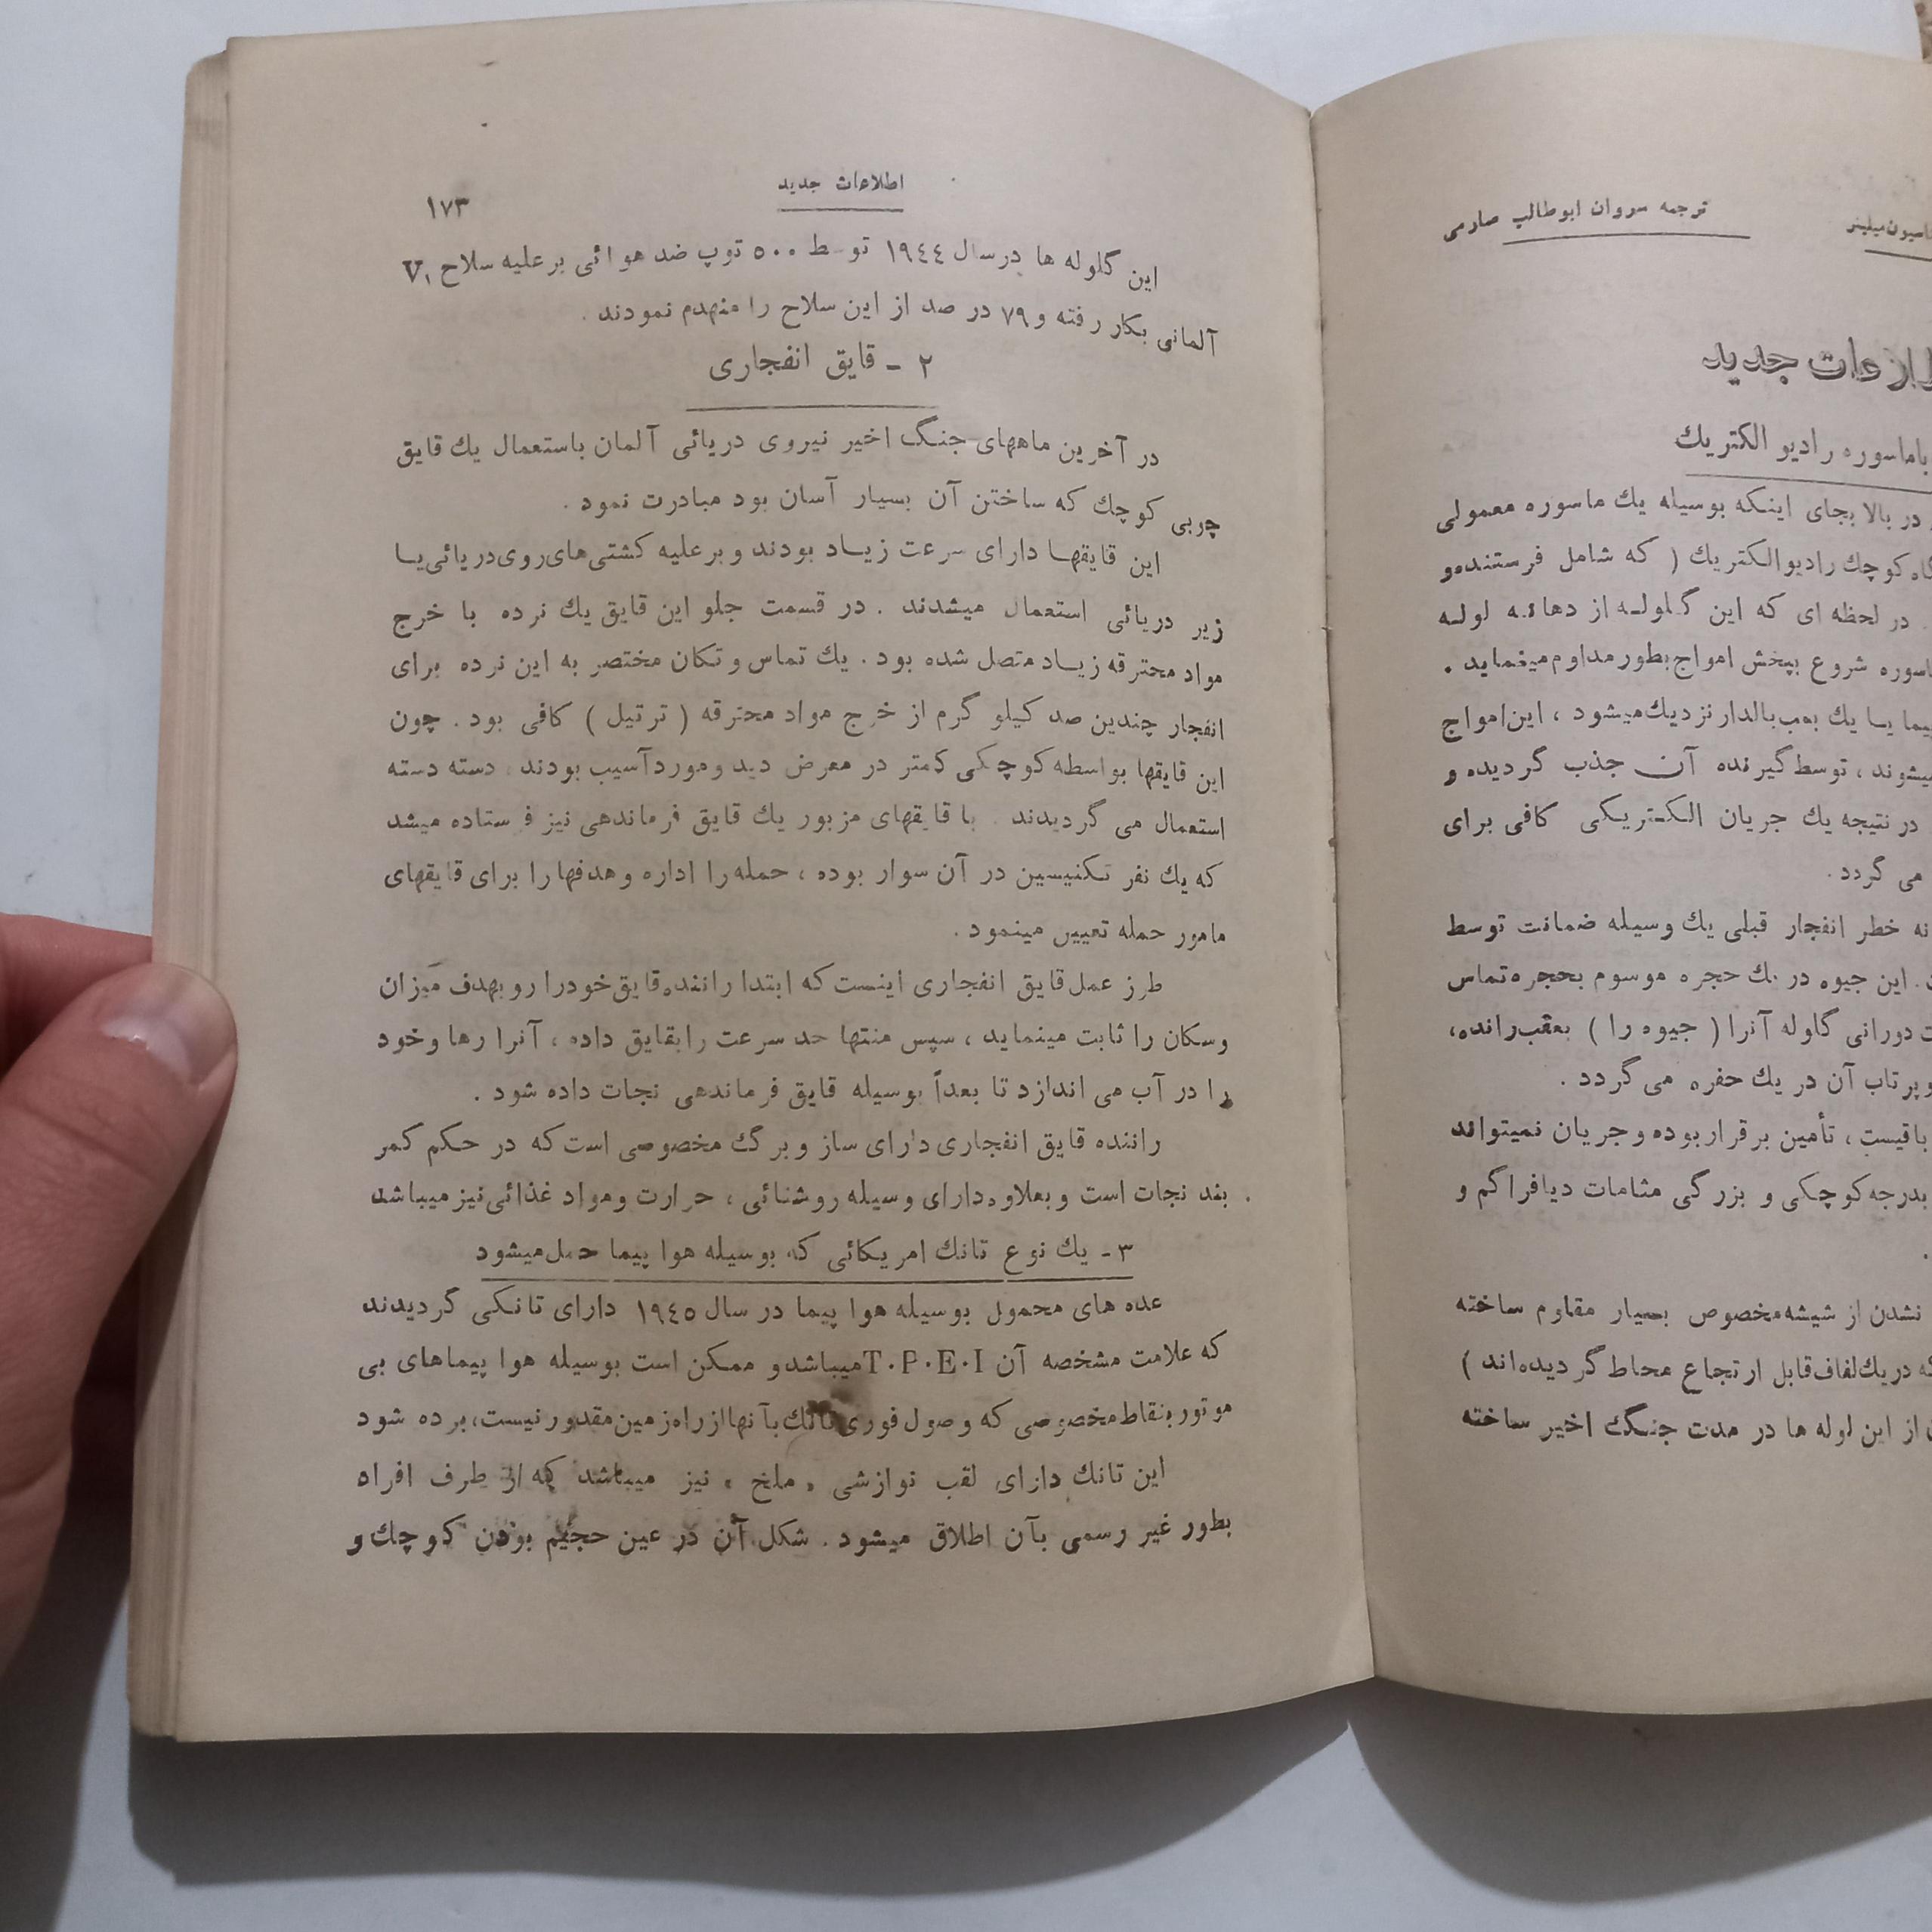 ترجمه سروان ابوطالب صارمی
جدید
باماسوره رادیو الکتریك
در بالا بجای اینکه بوسیله یك ماسوره معمولی
کوچك رادیوالکتریك ( که شامل فرستنده‌و
. در لحظه ای که این گلولـه از دهانه لولـه
شروع بپخش امواج بطور مداوم مینماید .
یـا یك بمب بالدار نزدیك میشود ، این امواج
، توسط گیرنده آن جذب گردیده و
در نتیجه یك جریان الکتریکی کافی برای
می گردد .
خطر انفجار قبلی یك وسیله ضمانت توسط
. این جیوه در یك حجره موسوم بحجره تماس
دورانی گلوله آنرا ( جیوه را ) بعقب رانده،
آن در یك حفره می گردد .
باقیست ، تأمین برقرار بوده و جریان نمیتواند
بدرجه کوچکی و بزرگی مثامات دیافراگم و
نشدن از شیشه مخصوص بسیار مقاوم ساخته
در یك لفاف قابل ارتجاع محاط گردیده‌اند )
از این لوله ها در مدت جنگ اخیر ساخته
اطلاعات جدید
۱۷۳
این گلوله ها درسال ۱۹٤٤ توسط ٥٠٠ توپ ضد هوائی بر علیه سلاح V۱
آلمانی بکار رفته و ۷۹ در صد از این سلاح را منهدم نمودند .
۲ - قایق انفجاری
در آخرین ماههای جنگ اخیر نیروی دریائی آلمان باستعمال یك قایق
چوبی کوچك که ساختن آن بسیار آسان بود مبادرت نمود .
این قایقهـا دارای سرعت زیـاد بودند و بر علیه کشتی های روی دریائی یـا
زیر دریائی استعمال میشدند . در قسمت جلو این قایق یك نرده با خرج
مواد محترقه زیـاد متصل شده بود . یك تماس و تکان مختصر به این نرده برای
انفجار چندین صد کیلو گرم از خرج مواد محترقه ( ترتیل ) کافی بود . چون
این قایقها بواسطه کوچکی کمتر در معرض دید و مورد آسیب بودند ، دسته دسته
استعمال می گردیدند . با قایقهای مزبور یك قایق فرماندهی نیز فرستاده میشد
که یك نفر تکنیسین در آن سوار بوده ، حمله را اداره و هدفها را برای قایقهای
مامور حمله تعیین مینمود .
طرز عمل قایق انفجاری اینست که ابتدا راننده قایق خودرا رو بهدف میزان
و سکان را ثابت مینماید ، سپس منتها حد سرعت را بقایق داده ، آنرا رها و خود
را در آب می اندازد تا بعداً بوسیله قایق فرماندهی نجات داده شود .
راننده قایق انفجاری دارای ساز و برگ مخصوصی است که در حکم کمر
بند نجات است و بعلاوه دارای وسیله روشنائی ، حرارت و مواد غذائی نیز میباشد .
۳ - یك نوع تانك امریکائی که بوسیله هوا پیما حمل میشود
عده های محمول بوسیله هوا پیما در سال ۱۹٤٥ دارای تانکی گردیدند
که علامت مشخصه آن T.P.E.I میباشد و ممکن است بوسیله هوا پیماهای بی
موتور بنقاط مخصوصی که وصول فوری تانك بآنها از راه زمین مقدور نیست، برده شود
این تانك دارای لقب نوازشی « ملخ » نیز میباشد که از طرف افراد
بطور غیر رسمی بآن اطلاق میشود . شکل آن در عین حجیم بودن کوچك و